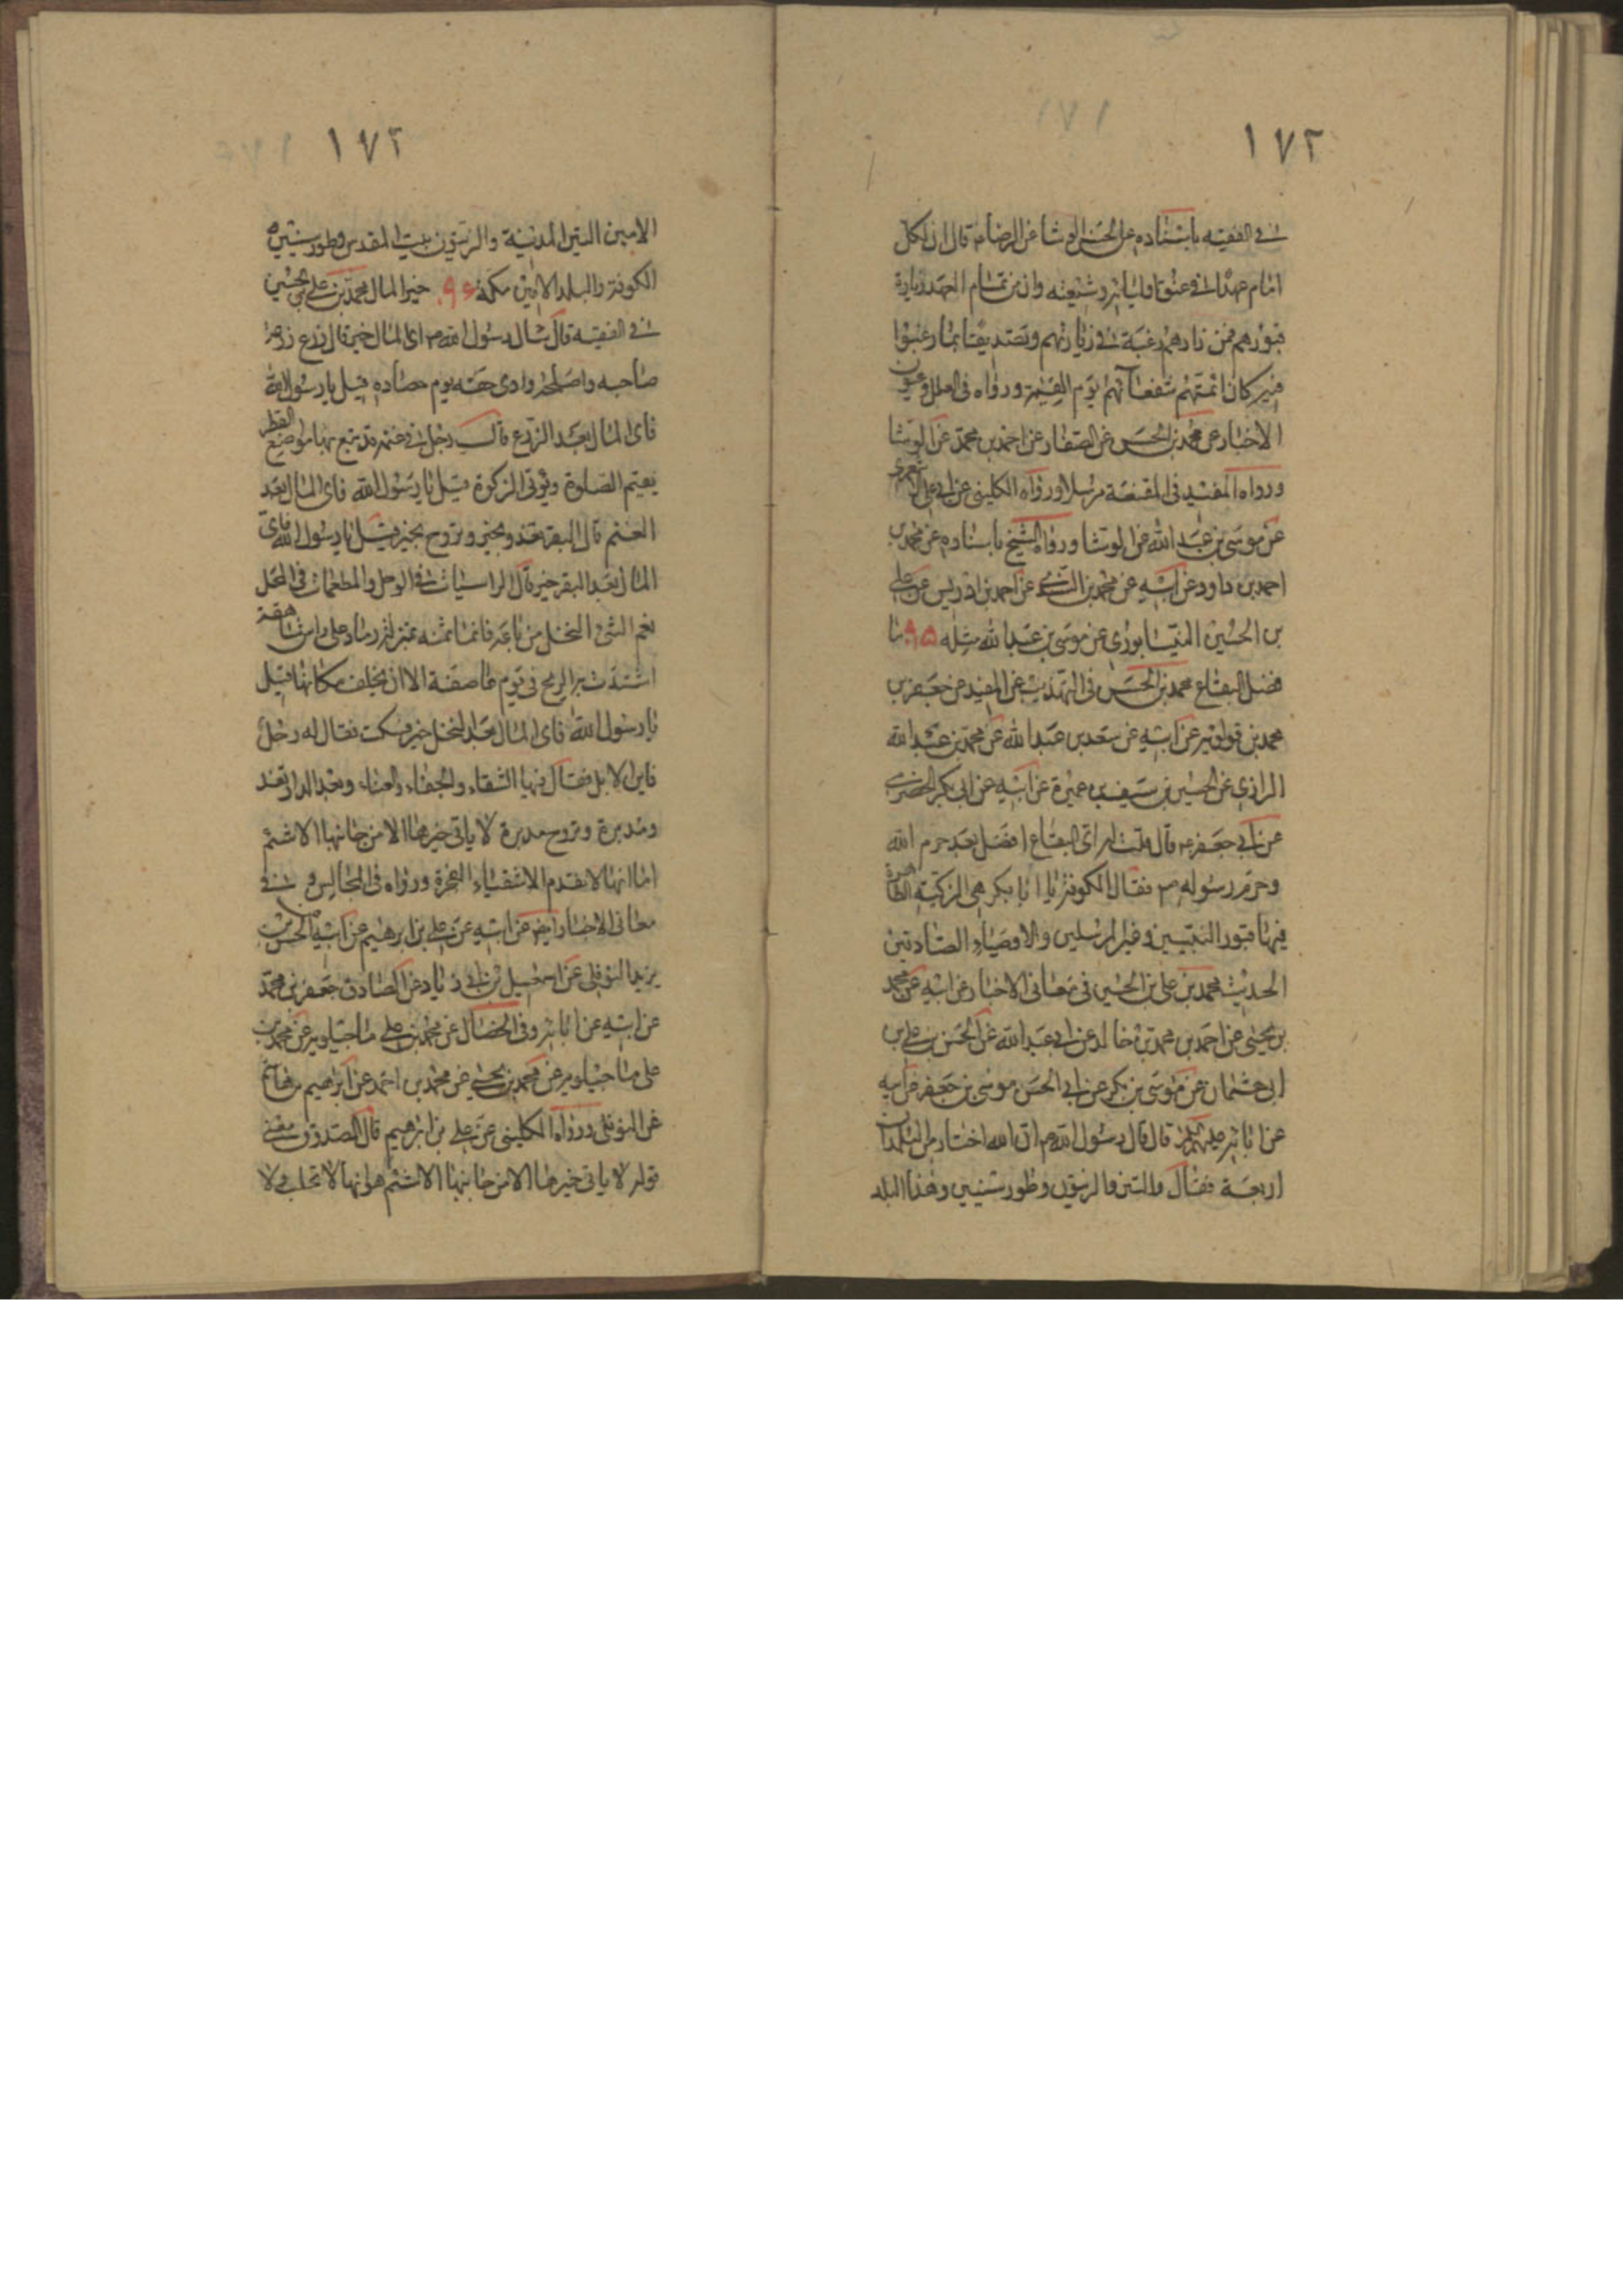 ١٧٢
في الفقيه باسناده عن الحسن الوشا عن الرضا م قال ان لكل
امام عهدا في عنق اوليائه وشيعته وان من تمام العهد زيارة
قبورهم فمن زارهم رغبة في زيارتهم وتصديقا بما رغبوا
فيه كان ائمتهم شفعائهم يوم القيمة ورواه في العلل وعيون
الاخبار عن محمد بن الحسن عن الصفار عن احمد بن محمد عن الوشا
ورواه المفيد في المقنعة مرسلا ورواه الكليني عن ابي علي الاشعري
عن موسى بن عبد الله عن الوشا ورواه الشيخ باسناده عن محمد بن
احمد بن داود عن ابيه عن محمد بن السندي عن احمد بن ادريس عن علي
بن الحسين النيسابوري عن موسى بن عبد الله مثله ٩٥ نا
فضل البقاع محمد بن الحسن في التهذيب عن المفيد عن جعفر بن
محمد بن قولويه عن ابيه عن سعد بن عبد الله عن محمد بن عبد الله
الرازي عن الحسين بن سيف بن عميرة عن ابيه عن ابي بكر الحضرمي
عن ابي جعفر ع قال قلت له اي البقاع افضل بعد حرم الله
وحرم رسوله ص فقال الكوفة يا ابا بكر هي الزكية الطاهرة
فيها قبور النبيين وغير المرسلين والاوصياء الصادقين
الحديث محمد بن علي بن الحسين في معاني الاخبار عن ابيه عن محمد
بن يحيى عن احمد بن محمد بن خالد عن ابي عبد الله عن الحسن بن علي بن
ابي عثمان عن موسى بن بكر عن ابي الحسن موسى بن جعفر عن ابيه
عن ابائه عليهم السلام قال قال رسول الله ص ان الله اختار من البلدان
اربعة فقال والتين والزيتون وطور سينين وهذا البلد
١٧٢
الامين التين المدينة والزيتون بيت المقدس وطور سينين
الكوفة والبلد الامين مكة ٩٦ خير المال محمد بن علي بن الحسين
في الفقيه قال سئل رسول الله ص اي المال خير قال زرع زرعه
صاحبه واصلحه وادى حقه يوم حصاده قيل يا رسول الله
فاي المال بعد الزرع قال رجل في غنمه قد تبع بها مواضع القطر
يقيم الصلوة ويؤتى الزكوة قيل يا رسول الله فاي المال بعد
الغنم قال البقر تغدو بخير وتروح بخير قيل يا رسول الله فاي
المال بعد البقر خير قال الراسيات في الوحل والمطعمات في المحل
نعم الشئ النخل من باعه فانما ثمنه بمنزلة رماد على راس شاهقة
اشتدت به الريح في يوم عاصفة الا ان يخلف مكانها قيل
يا رسول الله فاي المال بعد النخل خير فسكت فقال له رجل
فاين الابل فقال فيها الشقاء والجفاء والعناء وبعد الدار تغدو
ومدبرة وتروح مدبرة لا ياتى خيرها الا من جانبها الاشئم
اما انها لا تقدم الاشقياء الفجرة ورواه في المجالس وفي
معاني الاخبار ايضا عن ابيه عن علي بن ابرهيم عن ابيه الحسن بن
يزيد النوفلي عن اسمعيل بن ابي زياد عن الصادق جعفر بن محمد
عن ابيه عن ابائه وفي الخصال عن محمد بن علي ماجيلويه عن محمد بن
علي ماجيلويه عن محمد بن يحيى عن محمد بن احمد عن ابراهيم بن هاشم
عن النوفلي ورواه الكليني عن علي بن ابرهيم قال الصدوق معنى
قوله لا ياتى خيرها الا من جانبها الاشئم هو انها لا تحلب ولا